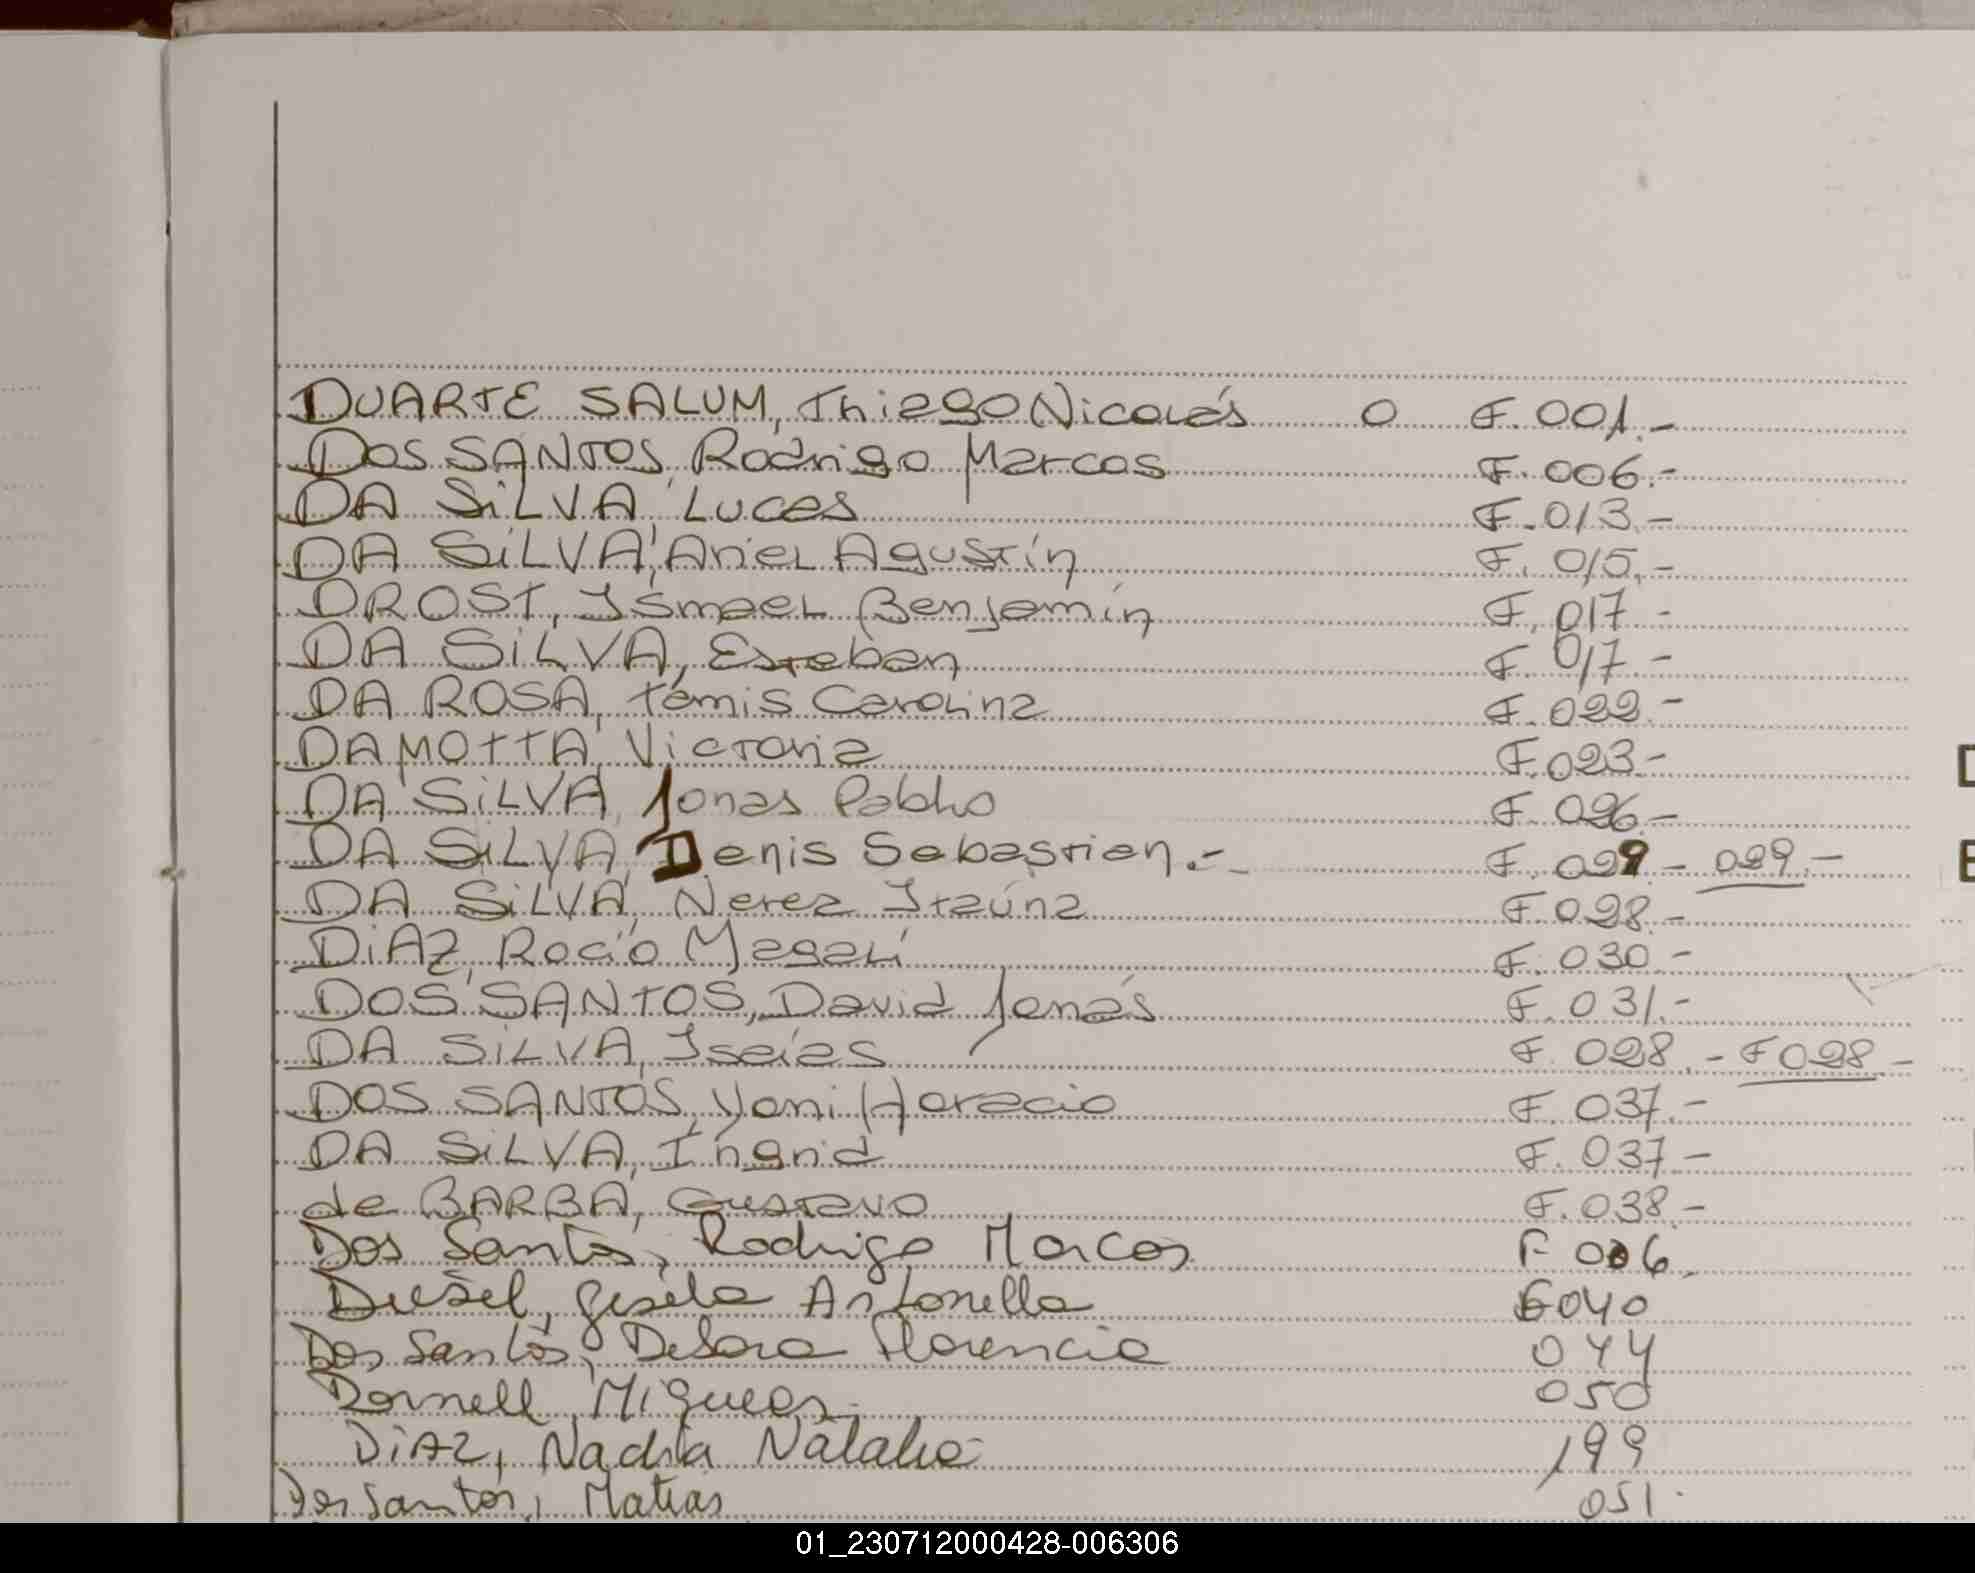 DUARTE SALUM, Thiago Nicolás O F. 001.-
DOS SANTOS, Rodrigo Marcos F. 006.-
DA SiLVA, Lucas F. 013.-
DA SiLVA, Ariel Agustín F. 015.-
DROST, Ismael Benjamín F. 017.-
DA SiLVA, Esteban F. 017.-
DA ROSA, Támis Carolina F. 022.-
DA MOTTA, Victoria F. 023.-
DA SiLVA, Jonas Pablo F. 026.-
DA SiLVA, Denis Sebastian.- F. 029.- 029.-
DA SiLVA, Nerea Itaúna F. 028.-
DiAZ, Rocío Magalí F. 030.-
DOS SANTOS, David Jonás F. 031.-
DA SiLVA, Isaías F. 028.- F 028.-
DOS SANTOS, Yoni Horacio F. 037.-
DA SiLVA, Ingrid F. 037.-
de BARBA, Gustavo F. 038.-
Dos Santos, Rodrigo Marcos F 006.
Diesel, Gisela Antonella F040
Dos Santos, Debora Florencia 044
Dornell, Miqueas 050
DiAZ, Nadia Natalia 199
Dos Santos, Matias 051.
D
E
01_230712000428-006306